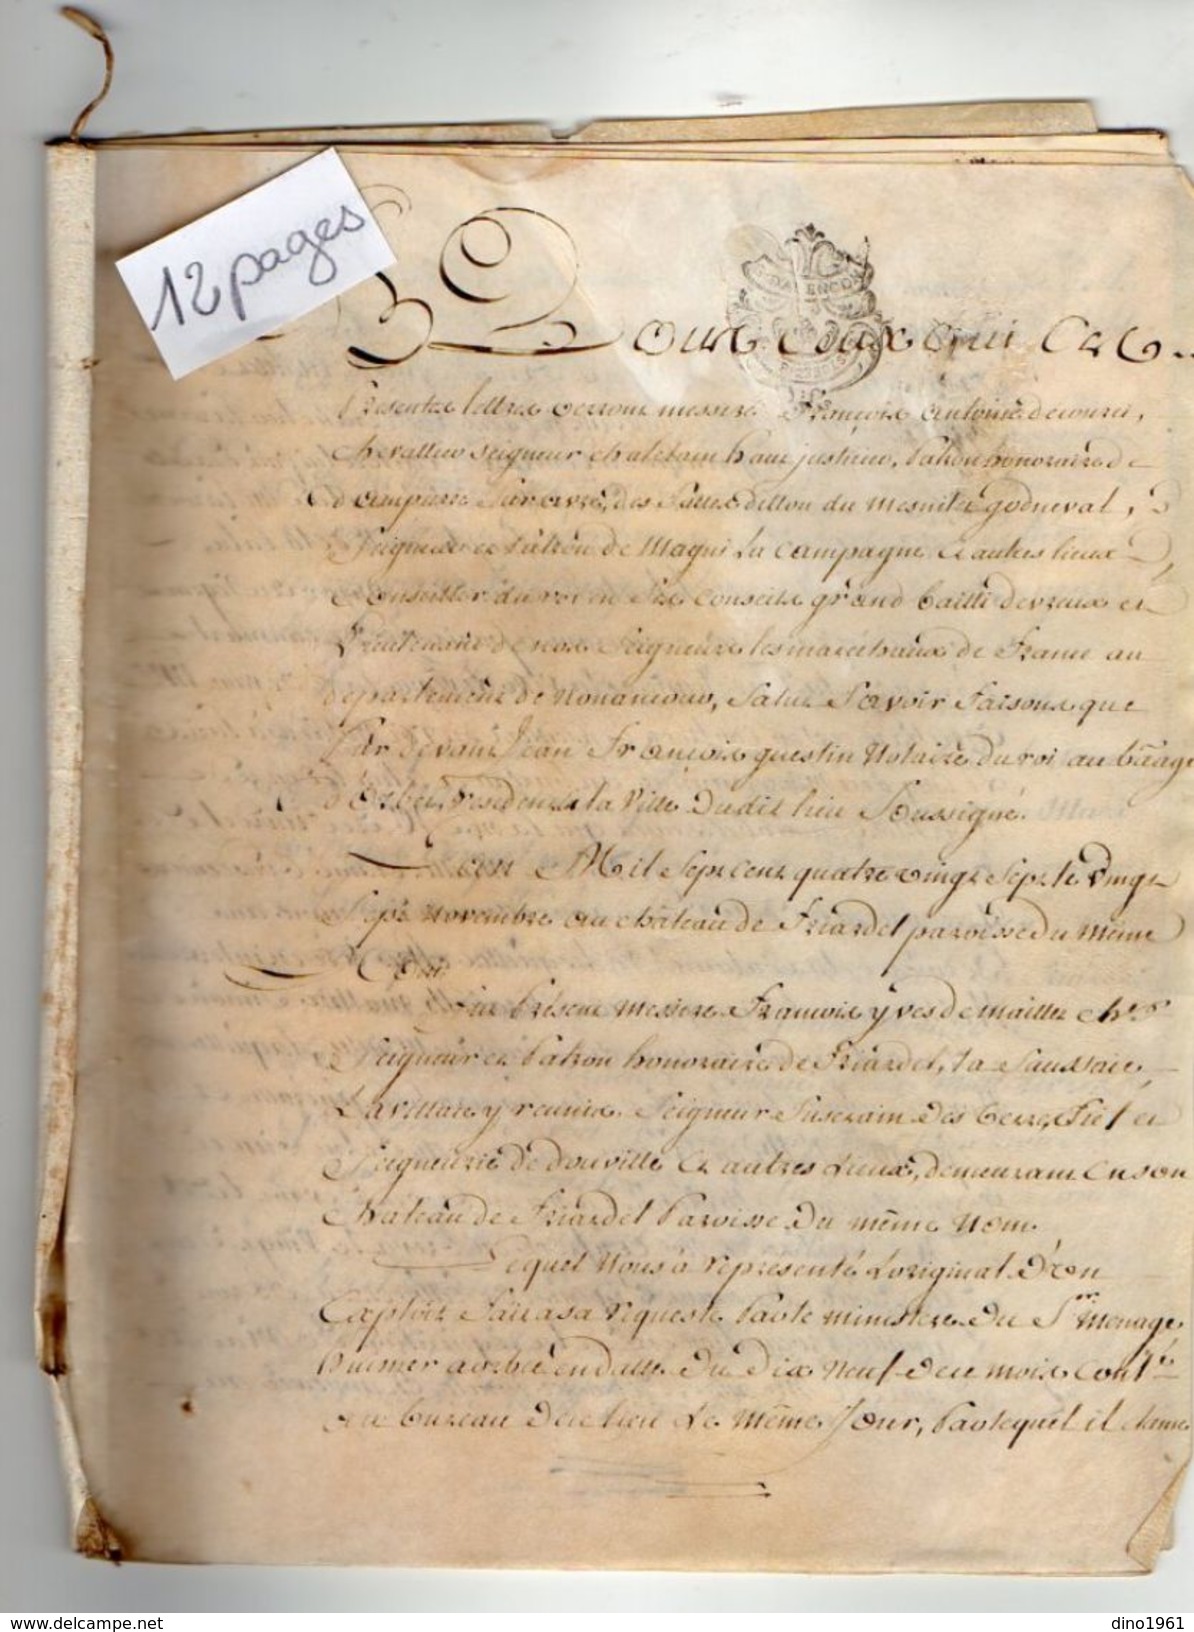 12 pages
D'ALENCON
A Tous Ceux qui Ces
Presentes lettres verront messire François antoine decourci,
chevallier seigneur chatelain haut justicier, Patron honoraire de
dampierre Sur avre, des Salles dillou du mesnil godneval,
Seigneur et Patron de Magni La campagne et autres lieux
Conseiller du roi en Ses Conseils grand bailli devreux et
Lieutenant de nos Seigneurs les marechaux de France au
departement de Nonancour, Salut Savoir Faisons que
Par devant Jean François questin Notaire du roi au bāage
d'Orbec, residence la Ville dudit lieu Soussigné.
L'an Mil Sept cent quatre vingt Sept le Vingt
Sept Novembre au château de Friardel paroisse du même
Nom
Fut Présent Messire François yves de maillet Cher.
Seigneur et Patron honoraire de Friardel, La Saussaie,
La Vittare y reunis Seigneur Suserain des terre, Fief et
Seigneurie de douville et autres Lieux, demeurant en son
Château de Friardel Paroisse du même Nom.
Lequel Nous à représenté L'original d'un
Exploit Fait a sa requeste Par le ministere du Sr. Menage
huissier a orbec en datte du dix Neuf de ce mois Conllé
au bureau de ce lieu Le Même Jour, Par lequel il
www.delcampe.net
dino1961